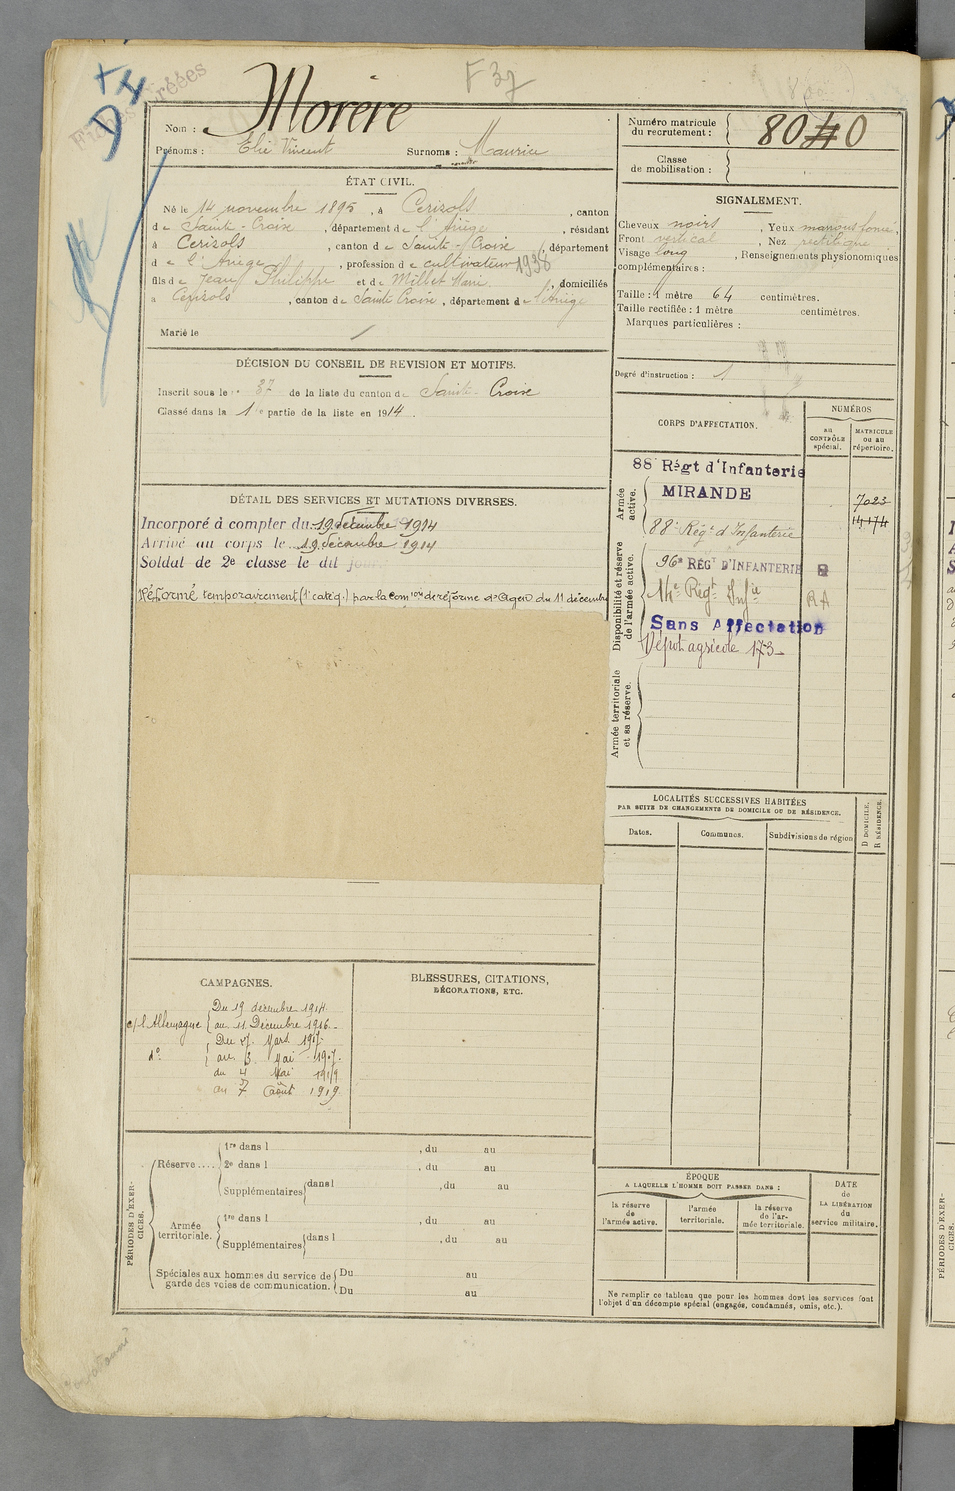 F 37
Morère
Nom :
Prénoms : Elie Vincent Surnoms : Maurice
Numéro matricule
du recrutement : 80 0
Classe
de mobilisation :
ÉTAT CIVIL.
Né le 14 novembre 1895, à Cerizols, canton
de Sainte-Croix, département de l'Ariège, résidant
à Cerizols, canton de Sainte-Croix, département
de l'Ariège, profession de cultivateur 1938
fils de Jean Philippe et de Millet Marie, domiciliés
à Cerizols, canton de Sainte Croix, département de l'Ariège
Marié le
SIGNALEMENT.
Cheveux noirs, Yeux marrons foncé,
Front vertical, Nez rectiligne
Visage long, Renseignements physionomiques
complémentaires :
Taille : 1 mètre 64 centimètres.
Taille rectifiée : 1 mètre centimètres.
Marques particulières :
Degré d'instruction : 1
DÉCISION DU CONSEIL DE REVISION ET MOTIFS.
Inscrit sous le n° 37 de la liste du canton de Sainte-Croix
Classé dans la 1re partie de la liste en 1914.
DÉTAIL DES SERVICES ET MUTATIONS DIVERSES.
Incorporé à compter du 19 décembre 1914
Arrivé au corps le 19 décembre 1914
Soldat de 2e classe le dit jour
Réformé temporairement (1e catég.) par la Comion de réforme d'Agen du 11 décembre
CORPS D'AFFECTATION.
NUMÉROS
au
CONTRÔLE
spécial.
MATRICULE
ou au
répertoire.
Armée
active.
88 Régt d'Infanterie
MIRANDE
7023
88e Régt d'Infanterie
14174
Disponibilité et réserve
de l'armée active.
96e RÉGT D'INFANTERIE
14e Régt Infie RA
Sans Affectation
Dépôt agricole 173
Armée territoriale
et sa réserve.
LOCALITÉS SUCCESSIVES HABITÉES
PAR SUITE DE CHANGEMENTS DE DOMICILE OU DE RÉSIDENCE.
Dates.
Communes.
Subdivisions de région
D DOMICILE.
R RÉSIDENCE.
CAMPAGNES.
c/ l'Allemagne
Du 19 décembre 1914
au 11 Décembre 1916
Du 27 Mars 1917
do au 3 Mai 1917.
du 4 Mai 1919
au 7 Août 1919.
BLESSURES, CITATIONS,
DÉCORATIONS, ETC.
PÉRIODES D'EXER-
CICES.
Réserve ....
1re dans l , du au
2e dans l , du au
Supplémentaires dans l , du au
Armée
territoriale.
1re dans l , du au
Supplémentaires dans l , du au
Spéciales aux hommes du service de
garde des voies de communication.
Du au
Du au
ÉPOQUE
A LAQUELLE L'HOMME DOIT PASSER DANS :
la réserve
de
l'armée active.
l'armée
territoriale.
la réserve
de l'ar-
mée territoriale.
DATE
de
LA LIBÉRATION
du
service militaire.
Ne remplir ce tableau que pour les hommes dont les services font
l'objet d'un décompte spécial (engagés, condamnés, omis, etc.).
PÉRIODES D'EXER-
CICES.